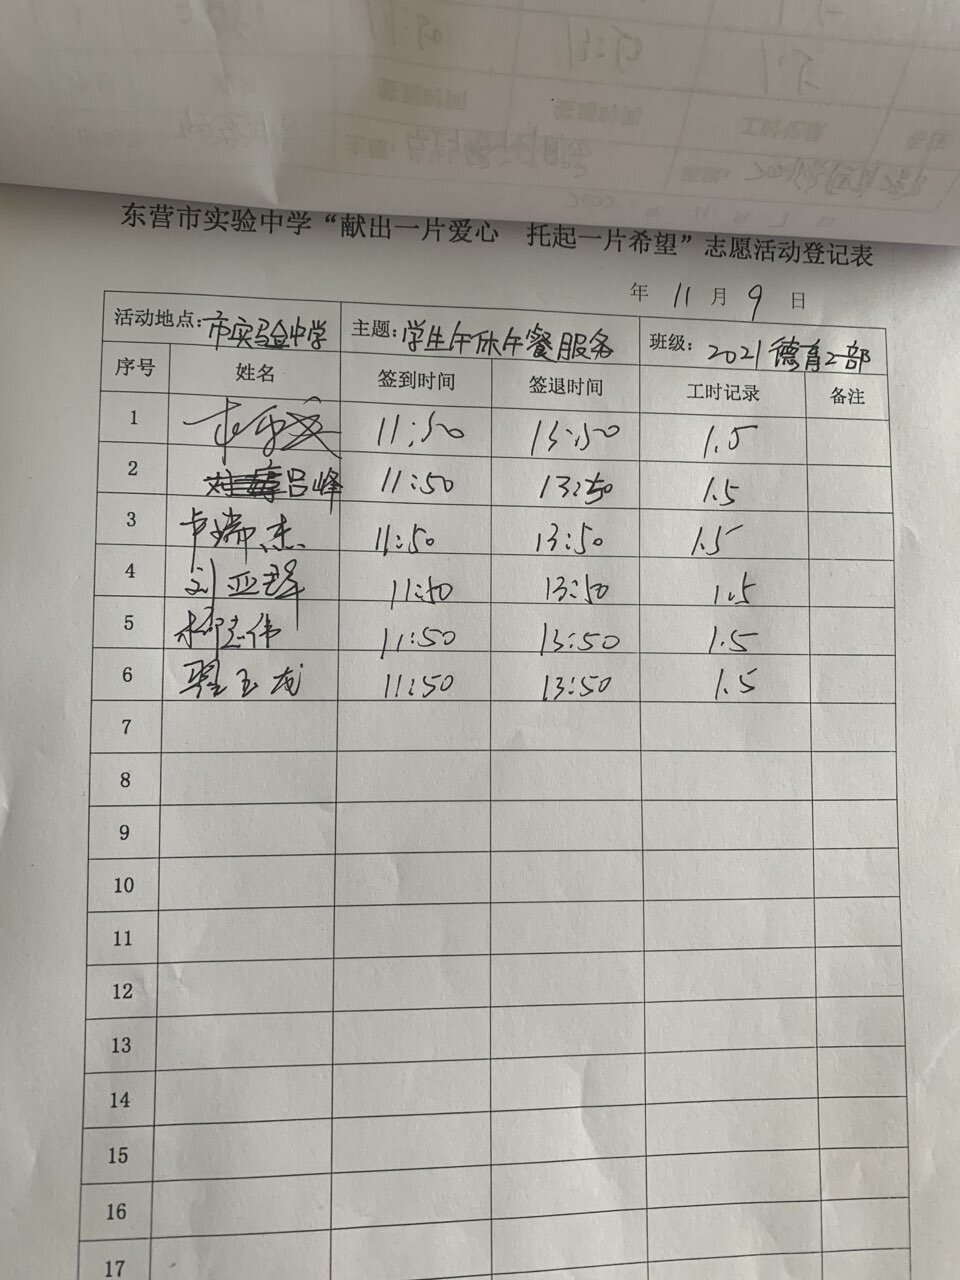 东营市实验中学“献出一片爱心 托起一片希望”志愿活动登记表
年 11 月 9 日
活动地点:市实验中学 主题:学生午休午餐服务 班级:2021德育2部
序号 姓名 签到时间 签退时间 工时记录 备注
1 11:50 13:50 1.5
2 吕峰 11:50 13:50 1.5
3 卢瑞杰 11:50 13:50 1.5
4 刘亚群 11:50 13:50 1.5
5 11:50 13:50 1.5
6 翟玉龙 11:50 13:50 1.5
7
8
9
10
11
12
13
14
15
16
17